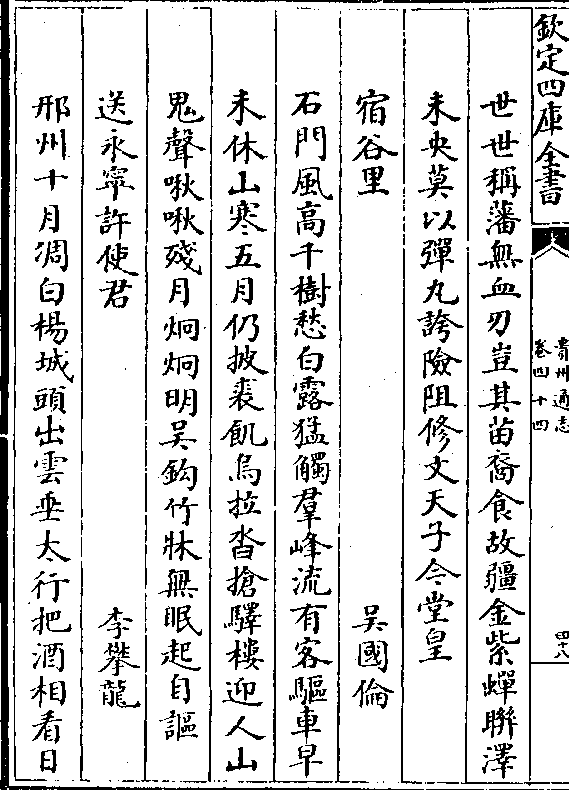 欽定四庫全書
貴州通志
卷四十四
四十八
世世稱藩無血刃豈其苗裔食故疆金紫蟬聯澤
未央莫以彈丸誇險阻修文天子今堂皇
宿谷里 吳國倫
石門風高千樹愁白露猛觸羣峰流有客驅車早
未休山寒五月仍披裘飢烏拉沓搶驛樓迎人山
鬼聲啾啾殘月炯炯明吳鈎竹牀無眠起自謳
送永寧許使君 李攀龍
邢州十月凋白楊城頭出雲垂太行把酒相看日